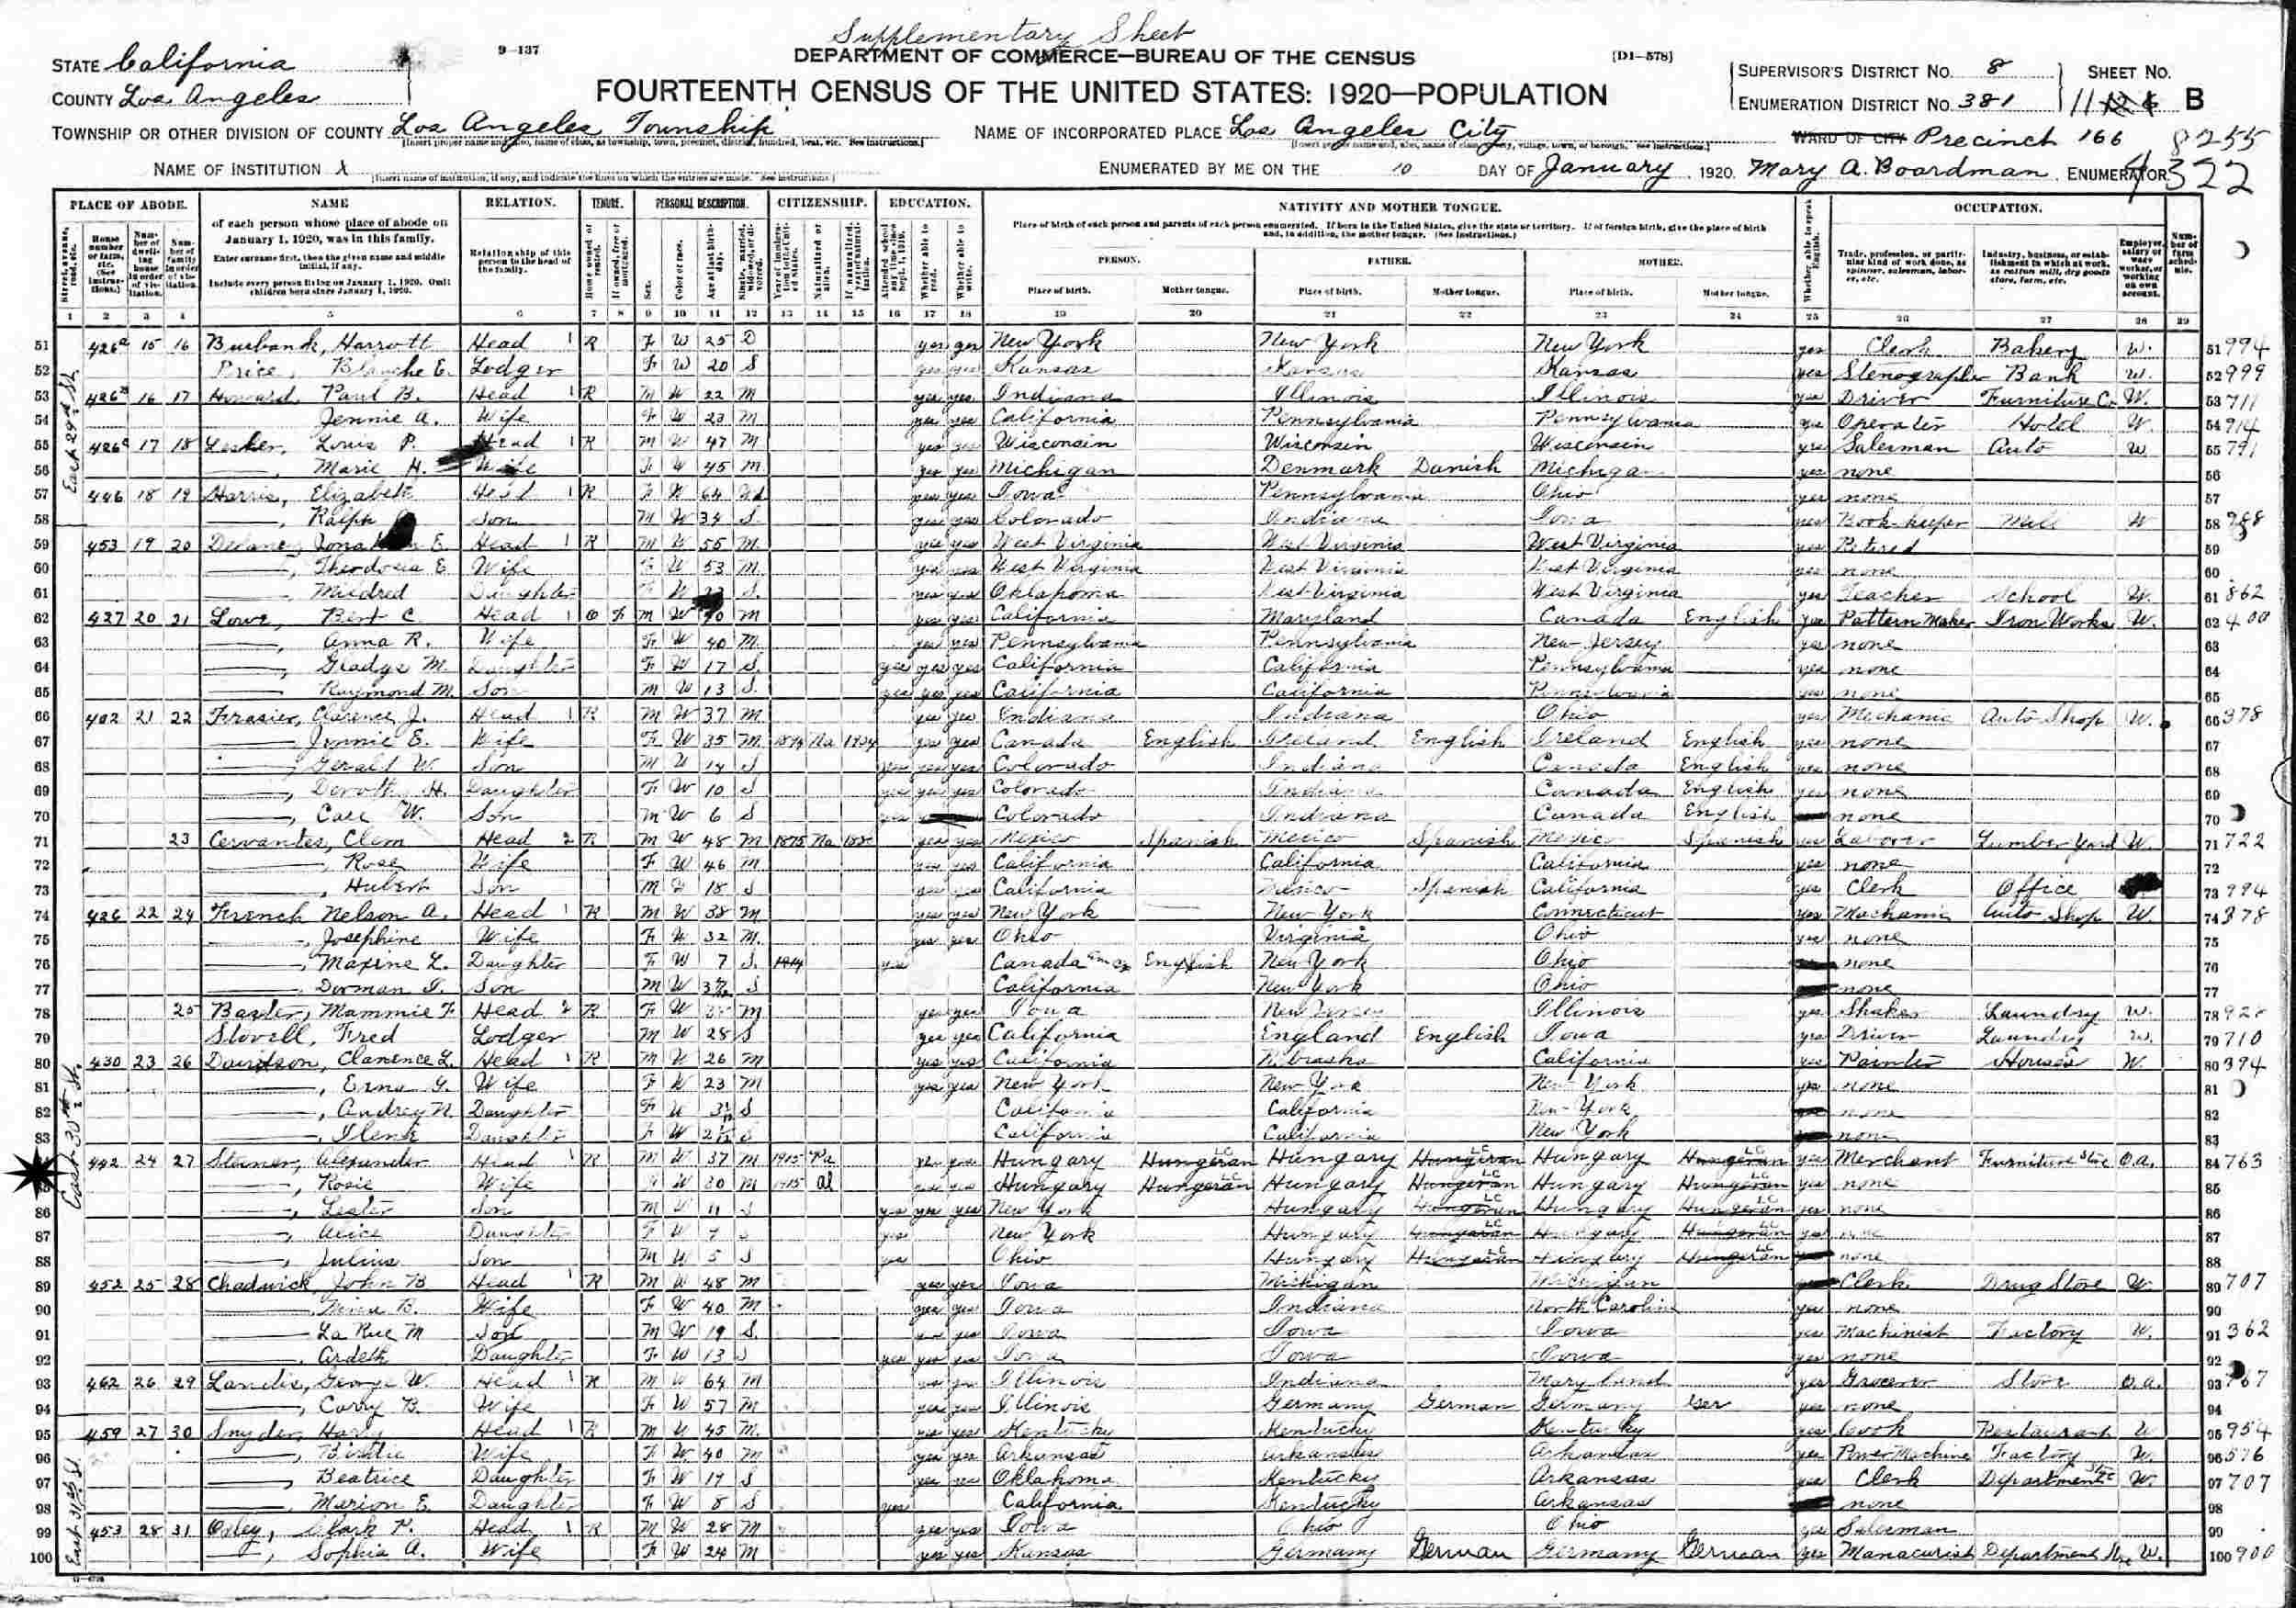 Supplementary Sheet
STATE California
9-137
DEPARTMENT OF COMMERCE—BUREAU OF THE CENSUS
[D1-578]
SUPERVISOR'S DISTRICT NO. 8
SHEET NO.
COUNTY Los Angeles
FOURTEENTH CENSUS OF THE UNITED STATES: 1920—POPULATION
ENUMERATION DISTRICT NO. 381
11 B
TOWNSHIP OR OTHER DIVISION OF COUNTY Los Angeles Township
NAME OF INCORPORATED PLACE Los Angeles City
WARD OF CITY Precinct 166
8255
NAME OF INSTITUTION X
ENUMERATED BY ME ON THE 10 DAY OF January, 1920. Mary A. Boardman, ENUMERATOR
4322
PLACE OF ABODE. NAME RELATION. TENURE. PERSONAL DESCRIPTION. CITIZENSHIP. EDUCATION. NATIVITY AND MOTHER TONGUE. OCCUPATION.
of each person whose place of abode on January 1, 1920, was in this family.
Enter surname first, then the given name and middle initial, if any.
Include every person living on January 1, 1920. Omit children born since January 1, 1920.
Relationship of this person to the head of the family.
Place of birth of each person and parents of each person enumerated. If born in the United States, give the state or territory. If of foreign birth, give the place of birth and, in addition, the mother tongue. (See Instructions.)
PERSON. FATHER. MOTHER.
Place of birth. Mother tongue. Place of birth. Mother tongue. Place of birth. Mother tongue.
1 2 3 4 5 6 7 8 9 10 11 12 13 14 15 16 17 18 19 20 21 22 23 24 25 26 27 28 29
East 29th St.
51 426 15 16 Head 1 R F W 25 D yes yes New York New York New York yes Clerk Bakery W. 51 994
52 Price, Blanche E. Lodger F W 20 S yes yes Kansas Kansas Kansas yes Stenographer Bank W. 52 999
53 426 16 17 Howard, Paul B. Head 1 R M W 22 M yes yes Indiana Illinois Illinois yes Driver Furniture Co. W. 53 711
54 Jennie A. Wife F W 23 M yes yes California Pennsylvania Pennsylvania yes Operator Hotel W. 54 914
55 426 17 18 Lesker, Louis P. Head 1 R M W 47 M yes yes Wisconsin Wisconsin Wisconsin yes Salesman Auto W 55 791
56 Marie H. Wife F W 45 M yes yes Michigan Denmark Danish Michigan yes none 56
57 446 18 19 Harris, Elizabeth Head 1 R F W 64 Wd yes yes Iowa Pennsylvania Ohio yes none 57
58 Ralph Son M W 34 S yes yes Colorado Indiana Iowa yes Book-keeper Mill W 58
59 453 19 20 E. Head 1 R M W 55 M yes yes West Virginia West Virginia West Virginia yes Retired 59
60 Theodosia E. Wife F W 53 M yes yes West Virginia West Virginia West Virginia yes none 60
61 Mildred Daughter W S. yes yes Oklahoma West Virginia West Virginia yes Teacher School W. 61 862
62 437 20 21 Lowe, Bert C. Head 1 O F M W 40 M yes yes California Maryland Canada English yes Pattern Maker Iron Works W. 62 400
63 Anna R. Wife F W 40 M yes yes Pennsylvania Pennsylvania New Jersey yes none 63
64 Gladys M. Daughter F W 17 S. yes yes yes California California Pennsylvania yes none 64
65 Raymond M. Son M W 13 S. yes yes yes California California Pennsylvania yes none 65
66 402 21 22 Frasier, Clarence J. Head 1 R M W 37 M yes yes Indiana Indiana Ohio yes Mechanic Auto Shop W. 66 378
67 Jennie E. Wife F W 35 M Na yes yes Canada English Ireland English Ireland English yes none 67
68 Gerald W. Son M W 14 S yes yes yes Colorado Indiana Canada English yes none 68
69 Dorothy H. Daughter F W 10 S yes yes yes Colorado Indiana Canada English yes none 69
70 Carl W. Son M W 6 S yes Colorado Indiana Canada English none 70
71 23 Cervantes, Clem Head 2 R M W 48 M 1875 Na yes yes Mexico Spanish Mexico Spanish Mexico Spanish yes Laborer Lumber Yard W. 71 722
72 Rose Wife F W 46 M yes yes California California California yes none 72
73 Hubert Son M W 18 S yes yes California Mexico Spanish California yes Clerk Office 73 994
74 426 22 24 French Nelson A. Head 1 R M W 38 M yes yes New York New York Connecticut yes Mechanic Auto Shop W. 74 378
75 Josephine Wife F W 32 M. yes yes Ohio Virginia Ohio yes none 75
76 Maxine L. Daughter F W 7 S. 1914 yes Canada English New York Ohio none 76
77 Dorman Son M W S California New York Ohio none 77
78 25 Baxter, Mammie F. Head 2 R F W M yes yes Iowa New Jersey Illinois yes Shaker Laundry W. 78 928
79 Stovell, Fred Lodger M W 28 S yes yes California England English Iowa yes Driver Laundry W. 79 710
East 30th St.
80 430 23 26 Davidson, Clarence L. Head 1 R M W 26 M yes yes California Nebraska California yes Painter Houses W. 80 394
81 Erna G. Wife F W 23 M yes yes New York New York New York yes none 81
82 Audrey N. Daughter F W S California California New York none 82
83 Ilene Daughter F W S California California New York none 83
442 24 27 Steiner, Alexander Head 1 R M W 37 M 1905 Pa yes yes Hungary Hungeran Hungary Hungeran Hungary Hungeran yes Merchant Furniture Store O.A. 84 763
Rosie Wife F W 30 M 1905 Al yes yes Hungary Hungeran Hungary Hungeran Hungary Hungeran yes none 85
86 Lester Son M W 11 S yes yes yes New York Hungary Hungeran Hungary Hungeran yes none 86
87 Alice Daughter F W 7 S yes New York Hungary Hungeran Hungary Hungeran yes none 87
88 Julius Son M W 5 S yes Ohio Hungary Hungeran Hungary Hungeran none 88
89 452 25 28 Chadwick, John B Head 1 R M W 48 M yes yes Iowa Michigan Michigan Clerk Drug Store W. 89 707
90 B. Wife F W 40 M yes yes Iowa Indiana North Carolina yes none 90
91 La Rue M Son M W 19 S. yes yes Iowa Iowa Iowa yes Machinist Factory W. 91 362
92 Ardeth Daughter F W 13 S yes yes yes Iowa Iowa Iowa yes none 92
93 462 26 29 Landis, George W. Head 1 R M W 64 M yes yes Illinois Indiana Maryland yes Grocer Store O.A. 93 767
94 Carry B. Wife F W 57 M yes yes Illinois Germany German Germany Ger yes none 94
East 31st St.
95 459 27 30 Snyder, Harry Head 1 R M W 45 M. yes yes Kentucky Kentucky Kentucky yes Cook Restaurant W 95 954
96 Wife F W 40 M yes yes Arkansas Arkansas Arkansas yes Power Machine Factory W. 96 576
97 Beatrice Daughter F W 19 S yes yes Oklahoma Kentucky Arkansas yes Clerk Department Store W. 97 707
98 Marion E. Daughter F W 8 S yes California Kentucky Arkansas none 98
99 453 28 31 Oxley, Head 1 R M W 28 M yes yes Iowa Ohio Ohio yes Salesman 99
100 Sophia A. Wife F W 24 M yes yes Kansas Germany German Germany German yes Manacurist Department Store W. 100 900